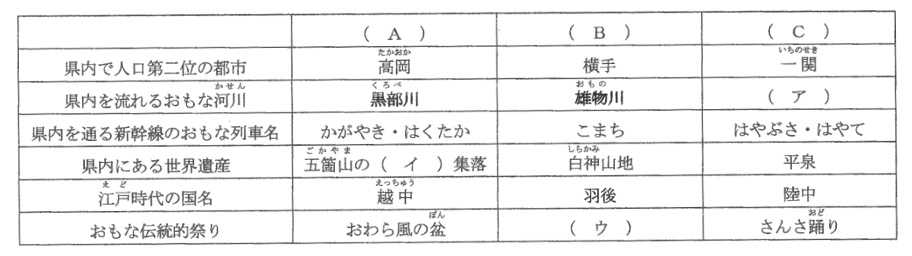 ( A ) ( B ) ( C )
県内で人口第二位の都市 高岡 横手 一関
たかおか いちのせき
県内を流れるおもな河川 黒部川 雄物川 ( ア )
かせん くろべ おもの
県内を通る新幹線のおもな列車名 かがやき・はくたか こまち はやぶさ・はやて
県内にある世界遺産 五箇山の( イ )集落 白神山地 平泉
ごかやま しらかみ
江戸時代の国名 越中 羽後 陸中
えど えっちゅう
おもな伝統的祭り おわら風の盆 ( ウ ) さんさ踊り
ぼん おど